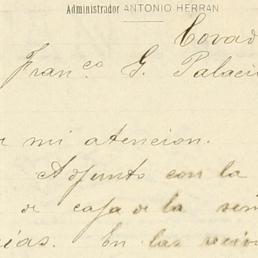 Administrador ANTONIO HERRAN
Covad
Franco G. Palaci
mi atencion.
Adjunto con la
de caja de la sem
En las